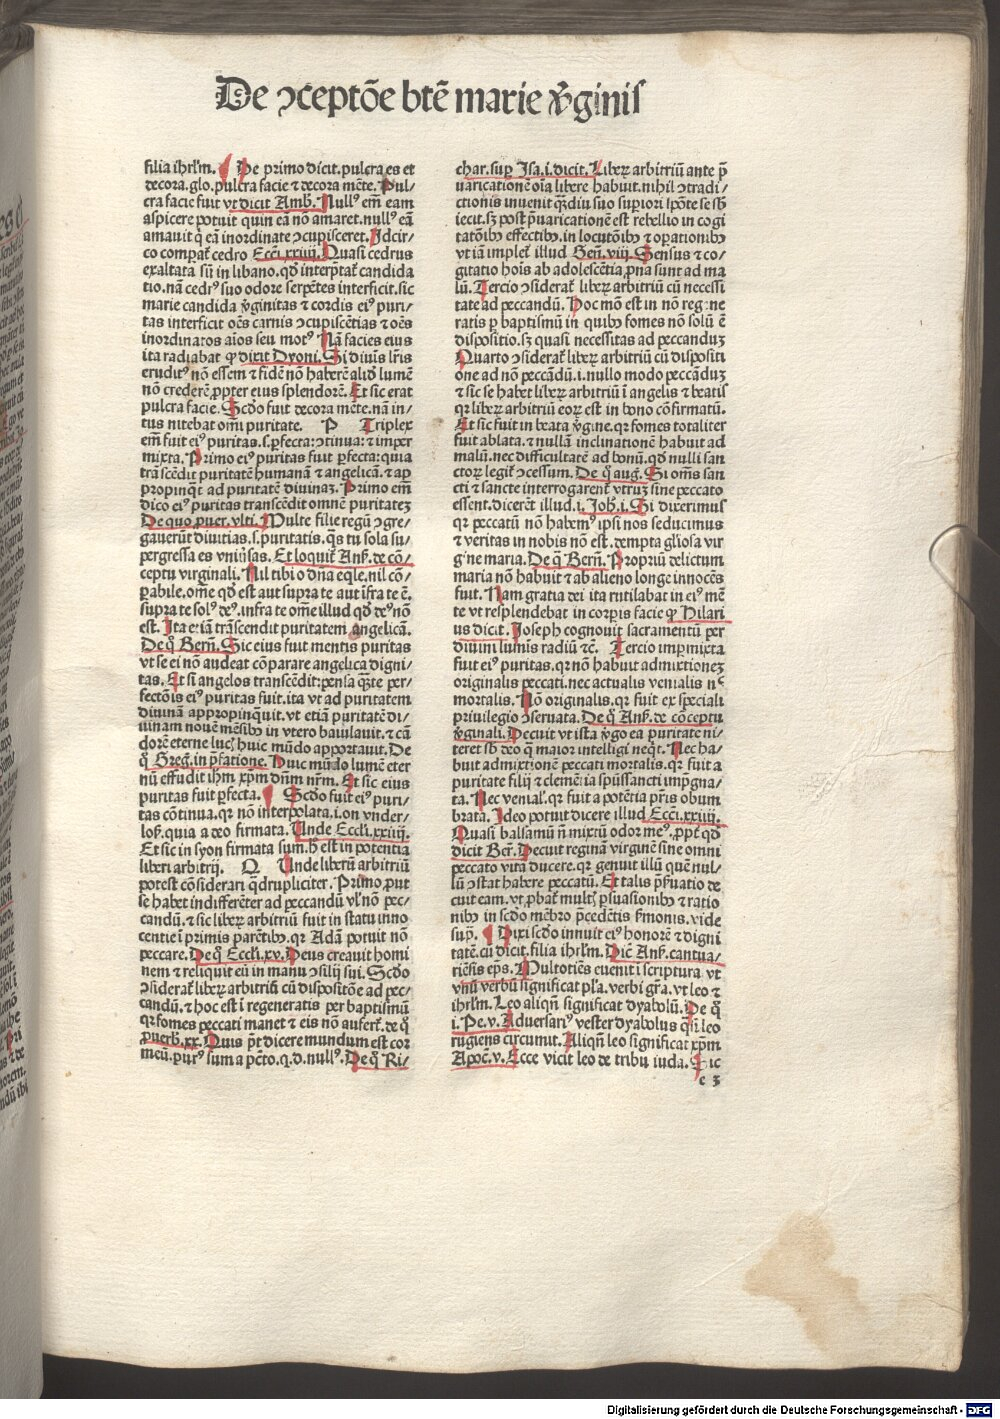 De ↄceptōe btē marie v̄ginis
filia ihrl'm. De primo dicit. pulcra es et
decora. glo. pulcra facie ⁊ decora mēte. Pul-
cra facie fuit vt dicit Amb. Nullꝰ em̄ eam
aspicere potuit quin eā nō amaret. nullꝰ eā
amauit q̄ eā inordinate ↄcupisceret. Idcir-
co compat̄ cedro Ecci. xxiiii. Quasi cedrus
exaltata sū in libano. qd̄ interp̄tat̄ candida
tio. nā cedrꝰ suo odore serpētes interficit. sic
marie candida v̄ginitas ⁊ cordis eiꝰ puri-
tas interficit oēs carnis ↄcupiscētias ⁊ oēs
inordinatos aīos seu motꝰ. Nā facies eius
ita radiabat ꝙ dixit Dyoni. Si diuīs l'ris
eruditꝰ non essem ⁊ fidē non haberē aliḋ lumē
nō crederē ꝓpter eius splendorē. Et sic erat
pulcra facie. Scdo fuit decora mēte. nā in-
tus nitebat om̄i puritate. P Triplex
em̄ fuit eiꝰ puritas. s. ꝑfecta: ↄtinua: ⁊ imper
mixta. Primo eiꝰ puritas fuit ꝑfecta: quia
trāscēdit puritatē humanā ⁊ angelicā. ⁊ ap
propinq̄t ad puritatē diuinaʒ. Primo em̄
dico eiꝰ puritas transcēdit omnē puritateʒ
De quo ꝓuer. vlti. Multe filie regū ↄgre-
gauerūt diuitias. s. puritatis. q̄s tu sola su-
pergressa es vniũsas. Et loquit̄ Anß. de cō-
ceptu virginali. Nil tibi o dn̄a eq̄le. nil cō-
ꝑabile. om̄e qd̄ est aut supra te aut īfra te ē.
supra te solꝰ deꝰ. infra te om̄e illud qd̄ deꝰ nō
est. Ita etiā trāscendit puritatem angelicā.
De q̊ Bern̄. Sic eius fuit mentis puritas
vt se ei nō audeat cōparare angelica digni-
tas. Et si angelos transcēdit: pensa q̄ȝte per-
fectōis eiꝰ puritas fuit. ita vt ad puritatem
diuinā appropinq̄uit. vt etiā puritatē di-
uinam nouē mēsibꝰ in vtero baiulauit. ⁊ cā
dorē eterne luc̄ huic mūdo apportauit. De
q̊ Greg. in p̄fatione. Huic mūdo lumē eter
nū effudit ihm̄ xp̄m dn̄m nr̄m. Et sic eius
puritas fuit ꝑfecta. Scdo fuit eiꝰ puri-
tas cōtinua. qꝛ non interpolata. i. on vnder-
loß. quia a deo firmata. Unde Eccli. xxiiii.
Et sic in syon firmata sum. h̄ est in potentia
liberi arbitrij. Q Unde liberū arbitriū
potest cōsiderari q̄drupliciter. Primo ꝓut
se habet indifferēter ad peccandū vl' nō pec-
candū. ⁊ sic liberꝛ arbitriū fuit in statu inno
centie ī primis parētibꝰ. qꝛ Adā potuit nō
peccare. De q̊ Eccli. xv. Deus creauit homi
nem ⁊ reliquit eū in manu ↄsilij sui. Scdo
ↄsiderat̄ liberꝛ arbitriū cū dispositōe ad pec-
candū. ⁊ hoc est ī regeneratis per baptismū
qꝛ fomes peccati manet ⁊ eis nō aufert̄. de q̊
ꝓuerb. xx. Quis p̄t dicere mundum est cor
meū. purꝰ sum a pctō. q. d. nullꝰ. De q̊ Ri-
char. suꝑ Isa. i. dicit. Liberꝛ arbitriū ante p̄
uaricationē oīa libere habuit. nihil ↄtradi-
ctionis inuenit q̄ȝdiu suo superiori spōte se sb̄
iecit. sʒ post p̄uaricationē est rebellio in cogi
tatōibꝰ effectibꝰ. in locutōibꝰ ⁊ oꝑationibꝰ
vt iā implet̄ illud Gen̄. viii. Sensus ⁊ co-
gitatio hoīs ab adolescētia ꝓna sunt ad ma
lū. Tercio ↄsiderat̄ liberꝛ arbitriū cū necessi
tate ad peccandū. hoc mō est in nō regene
ratis ꝑ baptismū in quibꝰ fomes nō solū ē
dispositio. sʒ quasi necessitas ad peccanduʒ
Quarto ↄsiderat̄ liberꝛ arbitriū cū dispositi
one ad non peccādū. i. nullo modo peccanduʒ
⁊ sic se habet liberꝛ arbitriū ī angelis ⁊ beatis
qꝛ liberꝛ arbitriū eoꝛ est in bono cōfirmatū.
Et sic fuit in beata v̄gine. qꝛ fomes totaliter
fuit ablata. ⁊ nullā inclinationē habuit ad
malū. nec difficultatē ad bonū. qd̄ nulli san
ctoꝛ legit̄ ↄcessum. De q̊ aug. Si om̄s san
cti ⁊ sancte interrogarent̄ vtruʒ sine peccato
essent. dicerēt illud. i. Joh̄. i. Si dixerimus
qꝛ peccatū nō habemꝰ ipsi nos seducimus
⁊ veritas in nobis nō est. dempta gl'iosa vir
gine maria. De q̄ Bern̄. Propriū delictum
maria nō habuit ⁊ ab alieno longe innocēs
fuit. Nam gratia dei ita rutilabat in eiꝰ mē
te vt resplendebat in corꝑis facie ꝙ Hilari
us dicit. Joseph cognouit sacramentū per
diuini lumīs radiū ⁊c̄. Tercio imꝑmixta
fuit eiꝰ puritas. qꝛ nō habuit admixtioneʒ
originalis peccati. nec actualis venialis nᶜ
mortalis. Nō originalis. qꝛ fuit ex speciali
priuilegio ↄseruata. De q̊ Anß. de cōceptu
v̄ginali. Decuit vt ista v̄go ea puritate ni-
teret sb̄ deo q̄ maior intelligi neq̄t. Nec ha-
buit admixtionē peccati mortalis. qꝛ fuit a
puritate filij ⁊ clemētia sp̄ussancti imp̄gna-
ta. Nec venial'. qꝛ fuit a potētia pr̄is obum
brata. Ideo potuit dicere illud Ecci. xxiiii.
Quasi balsamū nō mixtū odor meꝰ. ꝓpt̄ qd̄
dicit Ber̄. Decuit reginā virginē sine omni
peccato vitā ducere. qꝛ genuit illū quē nul-
lū ↄstat habere peccatū. Et talis p̄ßuatio de
cuit eam. vt ꝓbat̄ mult̄ ꝑsuasionibꝰ ⁊ ratio
nibꝰ in scdo mēbro p̄cedētis ßmonis. vide
sup̄. Dixi scdo innuit eiꝰ honorē ⁊ digni
tatē. cū dicit. filia ihrl'm. Dic̄ Anß. cantua-
riēsis ep̄s. Multotiēs euenit ī scriptura. vt
vnū verbū significat pl'a. verbi gr̄a. vt leo ⁊
ihrl'm. Leo aliqn̄ significat dyabolū. De q̊
i. Pe. v. Aduersariꝰ vester dyabolus q̄si leo
rugiens circumit. Aliqn̄ leo significat xp̄m
Apoc̄. v. Ecce vicit leo de tribu iuda. Sic
c 3
Digitalisierung gefördert durch die Deutsche Forschungsgemeinschaft - DFG